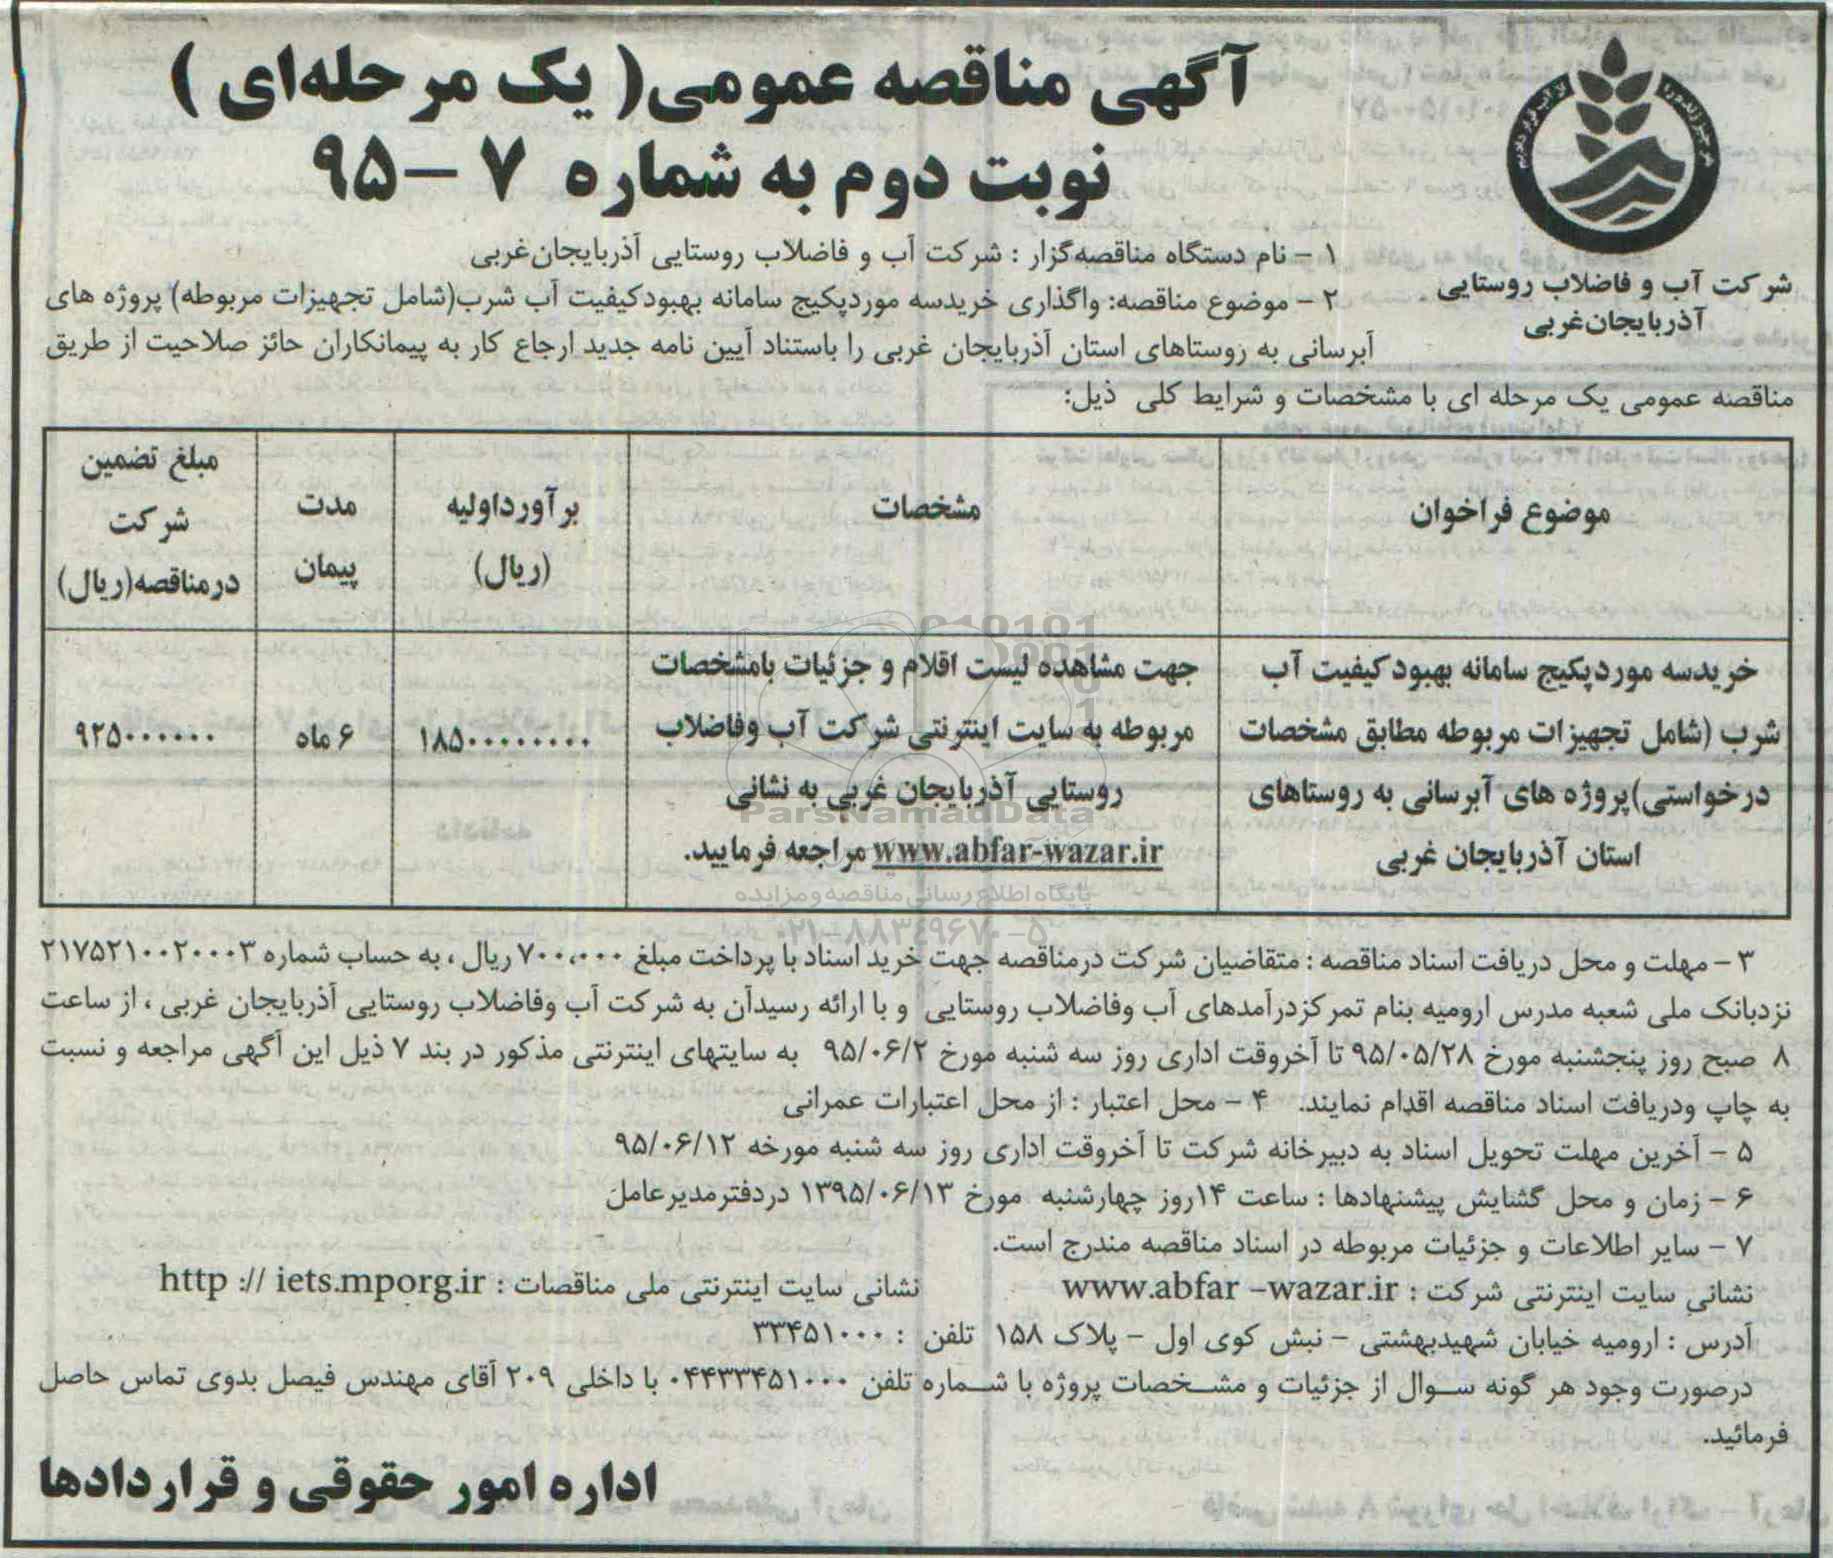 آگهی مناقصه عمومی( یک مرحله‌ای )
نوبت دوم به شماره ۷ – ۹۵
هر چیز زنده را
از آب قرار دادیم
شرکت آب و فاضلاب روستایی
آذربایجان‌غربی
۱ – نام دستگاه مناقصه‌گزار : شرکت آب و فاضلاب روستایی آذربایجان‌غربی
۲ – موضوع مناقصه: واگذاری خریدسه موردپکیج سامانه بهبودکیفیت آب شرب(شامل تجهیزات مربوطه) پروژه های
آبرسانی به روستاهای استان آذربایجان غربی را باستناد آیین نامه جدید ارجاع کار به پیمانکاران حائز صلاحیت از طریق
مناقصه عمومی یک مرحله ای با مشخصات و شرایط کلی ذیل:
موضوع فراخوان
مشخصات
برآورداولیه
(ریال)
مدت
پیمان
مبلغ تضمین
شرکت
درمناقصه(ریال)
خریدسه موردپکیج سامانه بهبودکیفیت آب
شرب (شامل تجهیزات مربوطه مطابق مشخصات
درخواستی)پروژه های آبرسانی به روستاهای
استان آذربایجان غربی
جهت مشاهده لیست اقلام و جزئیات بامشخصات
مربوطه به سایت اینترنتی شرکت آب وفاضلاب
روستایی آذربایجان غربی به نشانی
www.abfar-wazar.ir مراجعه فرمایید.
۱۸۵۰۰۰۰۰۰۰۰
۶ ماه
۹۲۵۰۰۰۰۰۰
ParsNamadData
پایگاه اطلاع رسانی مناقصه و مزایده
۰۲۱-۸۸۳۴۹۶۷۰-۵
۳ – مهلت و محل دریافت اسناد مناقصه : متقاضیان شرکت درمناقصه جهت خرید اسناد با پرداخت مبلغ ۷۰۰،۰۰۰ ریال ، به حساب شماره ۲۱۷۵۲۱۰۰۲۰۰۰۳
نزدبانک ملی شعبه مدرس ارومیه بنام تمرکزدرآمدهای آب وفاضلاب روستایی و با ارائه رسیدآن به شرکت آب وفاضلاب روستایی آذربایجان غربی ، از ساعت
۸ صبح روز پنجشنبه مورخ ۹۵/۰۵/۲۸ تا آخروقت اداری روز سه شنبه مورخ ۹۵/۰۶/۲ به سایتهای اینترنتی مذکور در بند ۷ ذیل این آگهی مراجعه و نسبت
به چاپ ودریافت اسناد مناقصه اقدام نمایند. ۴ – محل اعتبار : از محل اعتبارات عمرانی
۵ – آخرین مهلت تحویل اسناد به دبیرخانه شرکت تا آخروقت اداری روز سه شنبه مورخه ۹۵/۰۶/۱۲
۶ – زمان و محل گشایش پیشنهادها : ساعت ۱۴روز چهارشنبه مورخ ۱۳۹۵/۰۶/۱۳ دردفترمدیرعامل
۷ – سایر اطلاعات و جزئیات مربوطه در اسناد مناقصه مندرج است.
نشانی سایت اینترنتی شرکت : www.abfar –wazar.ir نشانی سایت اینترنتی ملی مناقصات : http :// iets.mporg.ir
آدرس : ارومیه خیابان شهیدبهشتی – نبش کوی اول – پلاک ۱۵۸ تلفن : ۳۳۴۵۱۰۰۰
درصورت وجود هر گونه سوال از جزئیات و مشخصات پروژه با شماره تلفن ۰۴۴۳۳۴۵۱۰۰۰ با داخلی ۲۰۹ آقای مهندس فیصل بدوی تماس حاصل
فرمائید.
اداره امور حقوقی و قراردادها